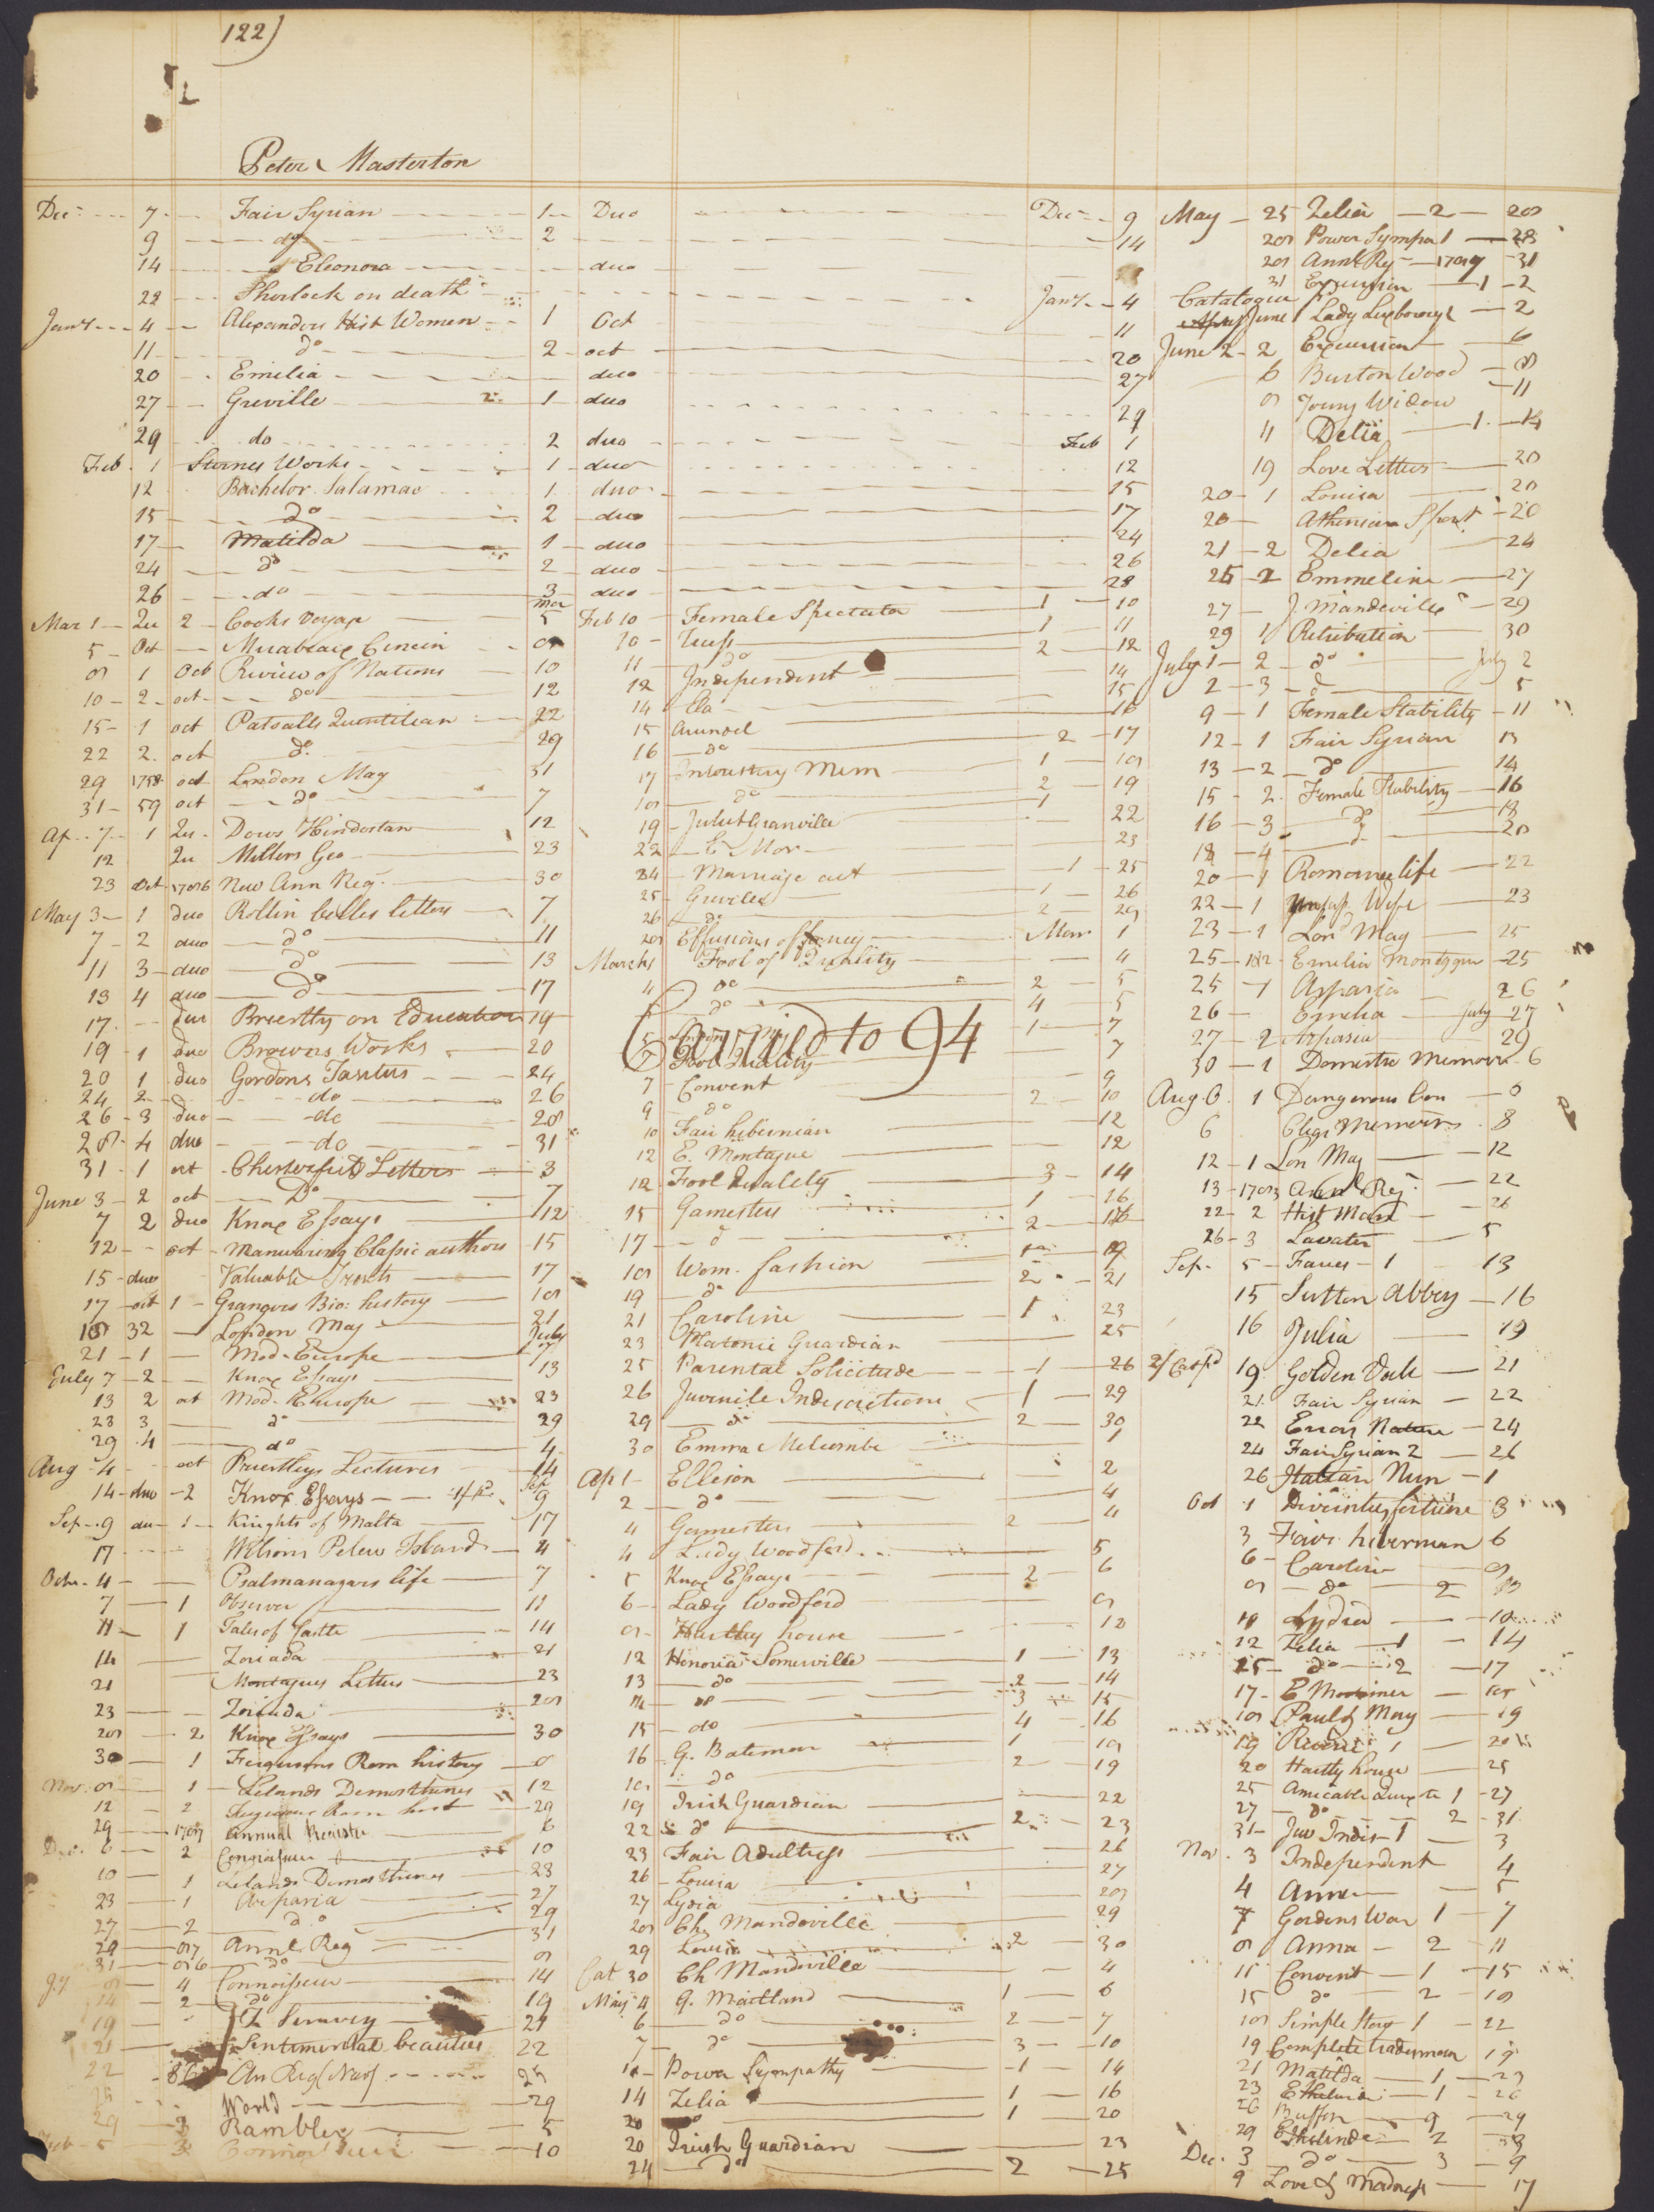 122)
Peter Masterton
Dec 7 Fair Syrian 1 Duo Dec 9
9 do 2 14
14 Eleonora duo
22 Sherlock on death Jany 4
Jany 4 Alexanders Hist Women 1 Oct 11
11 do 2 oct 20
20 Emilia duo 27
27 Greville 1 duo 29
29 do 2 duo Feb 1
Feb 1 Sternes Works 1 duo 12
12 Bachelor Salamac 1 duo 15
15 do 2 duo 17
17 Matilda 1 duo 24
24 do 2 duo 26
26 do 3 duo 28
Mar 1 Qu 2 Cooks Voyage Mar 5
5 Oct Mirabeau 8
8 1 Oct Review of Nations 10
10 2 oct do 12
15 1 oct Patsalls Quintilian 22
22 2 oct do 29
29 1758 oct London Mag 31
31 59 oct do 7
Ap 7 1 Qu Dows Hindostan 12
12 Qu Millers Geo 23
23 Oct 1786 New Ann Reg. 30
May 3 1 duo Rollin belles letters 7
7 2 duo do 11
11 3 duo do 13
13 4 duo do 17
17 duo Priestly on Education 19
19 1 duo Browns Works 20
20 1 duo Gordons Tacitus 24
24 2 do 26
26 3 duo do 28
28 4 duo do 31
31 1 oct Chesterfields Letters 3
June 3 2 oct Do 7
7 2 duo Knox Essays 12
12 oct Manwaring Classic authors 15
15 duo Valuable 17
17 oct 1 Grangers Bio: history 18
18 32 London Mag 21
21 1 Mod. Europe July 7
July 7 2 Knox Essays 13
13 2 oct Mod. Europe 23
23 3 do 29
29 4 do 4
Aug 4 oct Priestleys Lectures 14
14 duo 2 Knox Essays Sep 9
Sep 9 du 1 Knights of Malta 17
17 Wilsons Pelew Islands 4
Octr. 4 Psalmanazars life 7
7 1 Observer 11
11 1 Tales of Castle 14
14 Zoriada 21
21 Montagues Letters 23
23 Zoriada 28
28 2 Knox Essays 30
30 1 Fergusons Rom history 8
Nov 8 1 Lelands Demosthenes 12
12 2 Fergusons Rom hist 29
29 1787 Annual Register 6
Dec. 6 2 Connoisseur 10
10 1 Lelands Demosthenes 23
23 1 Aspasia 27
27 2 do 29
29 87 Annl. Reg 31
31 86 do 8
Jy 8 4 Connoisseur 14
14 2 do 19
19 21
21 Sentimental beauties 22
22 86 An Reg (New) 25
25 World 29
29 3 Rambler 5
Feb 5 3 Connoisseur 10
Feb 10 Female Spectator 1 10
10 Truss 1 11
11 do 2 12
12 Independent 14
14 Ela 15
15 Arundel 16
16 do 2 17
17 Mem 1 18
18 do 2 19
19 Juliet Granville 1 22
22 E Mor 23
24 Marriage act 1 25
25 Greville 1 26
26 do 2 29
28 Effusions of fancy Mar 1
March 1 Fool of Quality 4
4 do 2 5
do 4 5
1 7
Fool Quality 7
Carried to 94
7 Convent 9
9 do 2 10
10 Fair hibernian 12
12 E. Montague 12
12 Fool Quality 3 14
15 Gamesters 1 16
17 d 2 18
18 Wom. fashion 19
19 do 2 21
21 Caroline 1 23
23 Platonic Guardian 25
25 Parental Solicitude 1 26
26 Juvenile Indiscretions 1 29
29 do 2 30
30 Emma Melcombe 1
Ap 1 Ellison 2
2 do 4
4 Gamesters 2 4
4 Lady Woodford 5
5 Knox Essays 2 6
6 Lady Woodford 8
8 Hartley house 12
12 Honoria Somerville 1 13
13 do 2 14
14 do 3 15
15 do 4 16
16 G. Bateman 1 18
18 do 2 19
19 Irish Guardian 22
22 do 2 23
23 Fair Adultress 26
26 Louisa 27
27 Lydia 28
28 Ch. Mandeville 29
29 Louisa 2 30
Cat 30 Ch Mandeville 4
May 4 G. Maitland 1 6
6 do 2 7
7 do 3 10
10 Power Sympathy 1 14
14 Zelia 1 16
20 1 20
20 Irish Guardian 23
24 do 2 25
May 25 Zelia 2 28
28 Power Sympa 1 28
28 Annl. Reg 1789 31
31 Excursion 1 2
Catalogue
June 1 Lady Luxborough 2
June 2 2 Excursion 6
6 Burton Wood 8
8 Young Widow 11
11 Delia 1 14
19 Love Letters 20
20 1 Louisa 20
20 Athenian Sport 20
21 2 Delia 24
25 2 Emmeline 27
27 J. Mandeville 29
29 1 Retribution 30
July 1 2 do July 2
2 3 d 5
9 1 Female Stability 11
12 1 Fair Syrian 13
13 2 do 14
15 2 Female Stability 16
16 3 do 18
18 4 d 20
20 1 Romance life 22
22 1 Unfort Wife 23
23 1 Lon Mag 25
25 1&2 Emelia Montague 25
25 1 Aspasia 26
26 Emelia July 27
27 2 Aspasia 29
30 1 Domestic Memoirs 6
Aug 6 1 Dangerous Con 8
6 Memoirs 8
12 1 Lon Mag 12
13 1783 Annl Reg 22
22 2 Hist Man 26
26 3 Lavater 5
Sep. 5 Fauns 1 13
15 Sutton Abbey 16
16 Julia 19
19 Golden Vale 21
21 Fair Syrian 22
22 Errors Nature 24
24 Fair Syrian 2 26
26 Italian Nun 1
Oct 1 3
3 Fair hibernian 6
6 Caroline 8
8 do 2 10
10 Lydia 10
12 Zelia 1 14
15 do 2 17
17 E Mortimer 18
18 Paul & Mary 19
19 1 20
20 Hartly house 25
25 Amicable Quixote 1 27
27 do 2 31
31 Juv Indis 1 3
Nov. 3 Independent 4
4 Anna 5
7 Gordens War 1 7
8 Anna 2 11
11 Convent 1 15
15 do 2 18
18 Simple Story 1 22
19 Complete tradesman 19
21 Matilda 1 23
23 Ethelinde 1 26
26 Buffon 9 29
29 Ethelinde 2 3
Dec. 3 do 3 9
9 Love & Madness 17